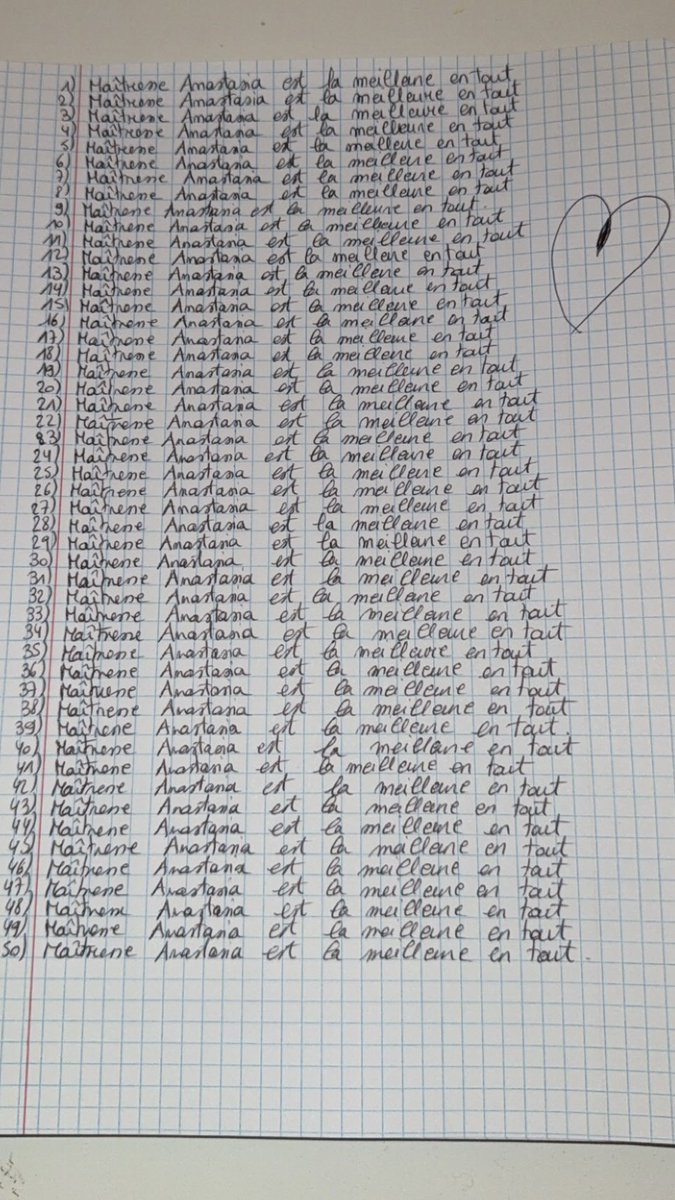 1) Maîtresse Anastasia est la meilleure en tout
2) Maîtresse Anastasia est la meilleure en tout
3) Maîtresse Anastasia est la meilleure en tout
4) Maîtresse Anastasia est la meilleure en tout
5) Maîtresse Anastasia est la meilleure en tout
6) Maîtresse Anastasia est la meilleure en tout
7) Maîtresse Anastasia est la meilleure en tout
8) Maîtresse Anastasia est la meilleure en tout
9) Maîtresse Anastasia est la meilleure en tout.
10) Maîtresse Anastasia est la meilleure en tout
11) Maîtresse Anastasia est la meilleure en tout
12) Maîtresse Anastasia est la meilleure en tout
13) Maîtresse Anastasia est la meilleure en tout
14) Maîtresse Anastasia est la meilleure en tout
15) Maîtresse Anastasia est la meilleure en tout
16) Maîtresse Anastasia est la meilleure en tout
17) Maîtresse Anastasia est la meilleure en tout
18) Maîtresse Anastasia est la meilleure en tout
19) Maîtresse Anastasia est la meilleure en tout
20) Maîtresse Anastasia est la meilleure en tout
21) Maîtresse Anastasia est la meilleure en tout
22) Maîtresse Anastasia est la meilleure en tout
23) Maîtresse Anastasia est la meilleure en tout
24) Maîtresse Anastasia est la meilleure en tout
25) Maîtresse Anastasia est la meilleure en tout
26) Maîtresse Anastasia est la meilleure en tout
27) Maîtresse Anastasia est la meilleure en tout
28) Maîtresse Anastasia est la meilleure en tout
29) Maîtresse Anastasia est la meilleure en tout
30) Maîtresse Anastasia est la meilleure en tout
31) Maîtresse Anastasia est la meilleure en tout
32) Maîtresse Anastasia est la meilleure en tout
33) Maîtresse Anastasia est la meilleure en tout
34) Maîtresse Anastasia est la meilleure en tout
35) Maîtresse Anastasia est la meilleure en tout
36) Maîtresse Anastasia est la meilleure en tout
37) Maîtresse Anastasia est la meilleure en tout
38) Maîtresse Anastasia est la meilleure en tout
39) Maîtresse Anastasia est la meilleure en tout.
40) Maîtresse Anastasia est la meilleure en tout
41) Maîtresse Anastasia est la meilleure en tout
42) Maîtresse Anastasia est la meilleure en tout
43) Maîtresse Anastasia est la meilleure en tout
44) Maîtresse Anastasia est la meilleure en tout
45) Maîtresse Anastasia est la meilleure en tout
46) Maîtresse Anastasia est la meilleure en tout
47) Maîtresse Anastasia est la meilleure en tout
48) Maîtresse Anastasia est la meilleure en tout
49) Maîtresse Anastasia est la meilleure en tout
50) Maîtresse Anastasia est la meilleure en tout.